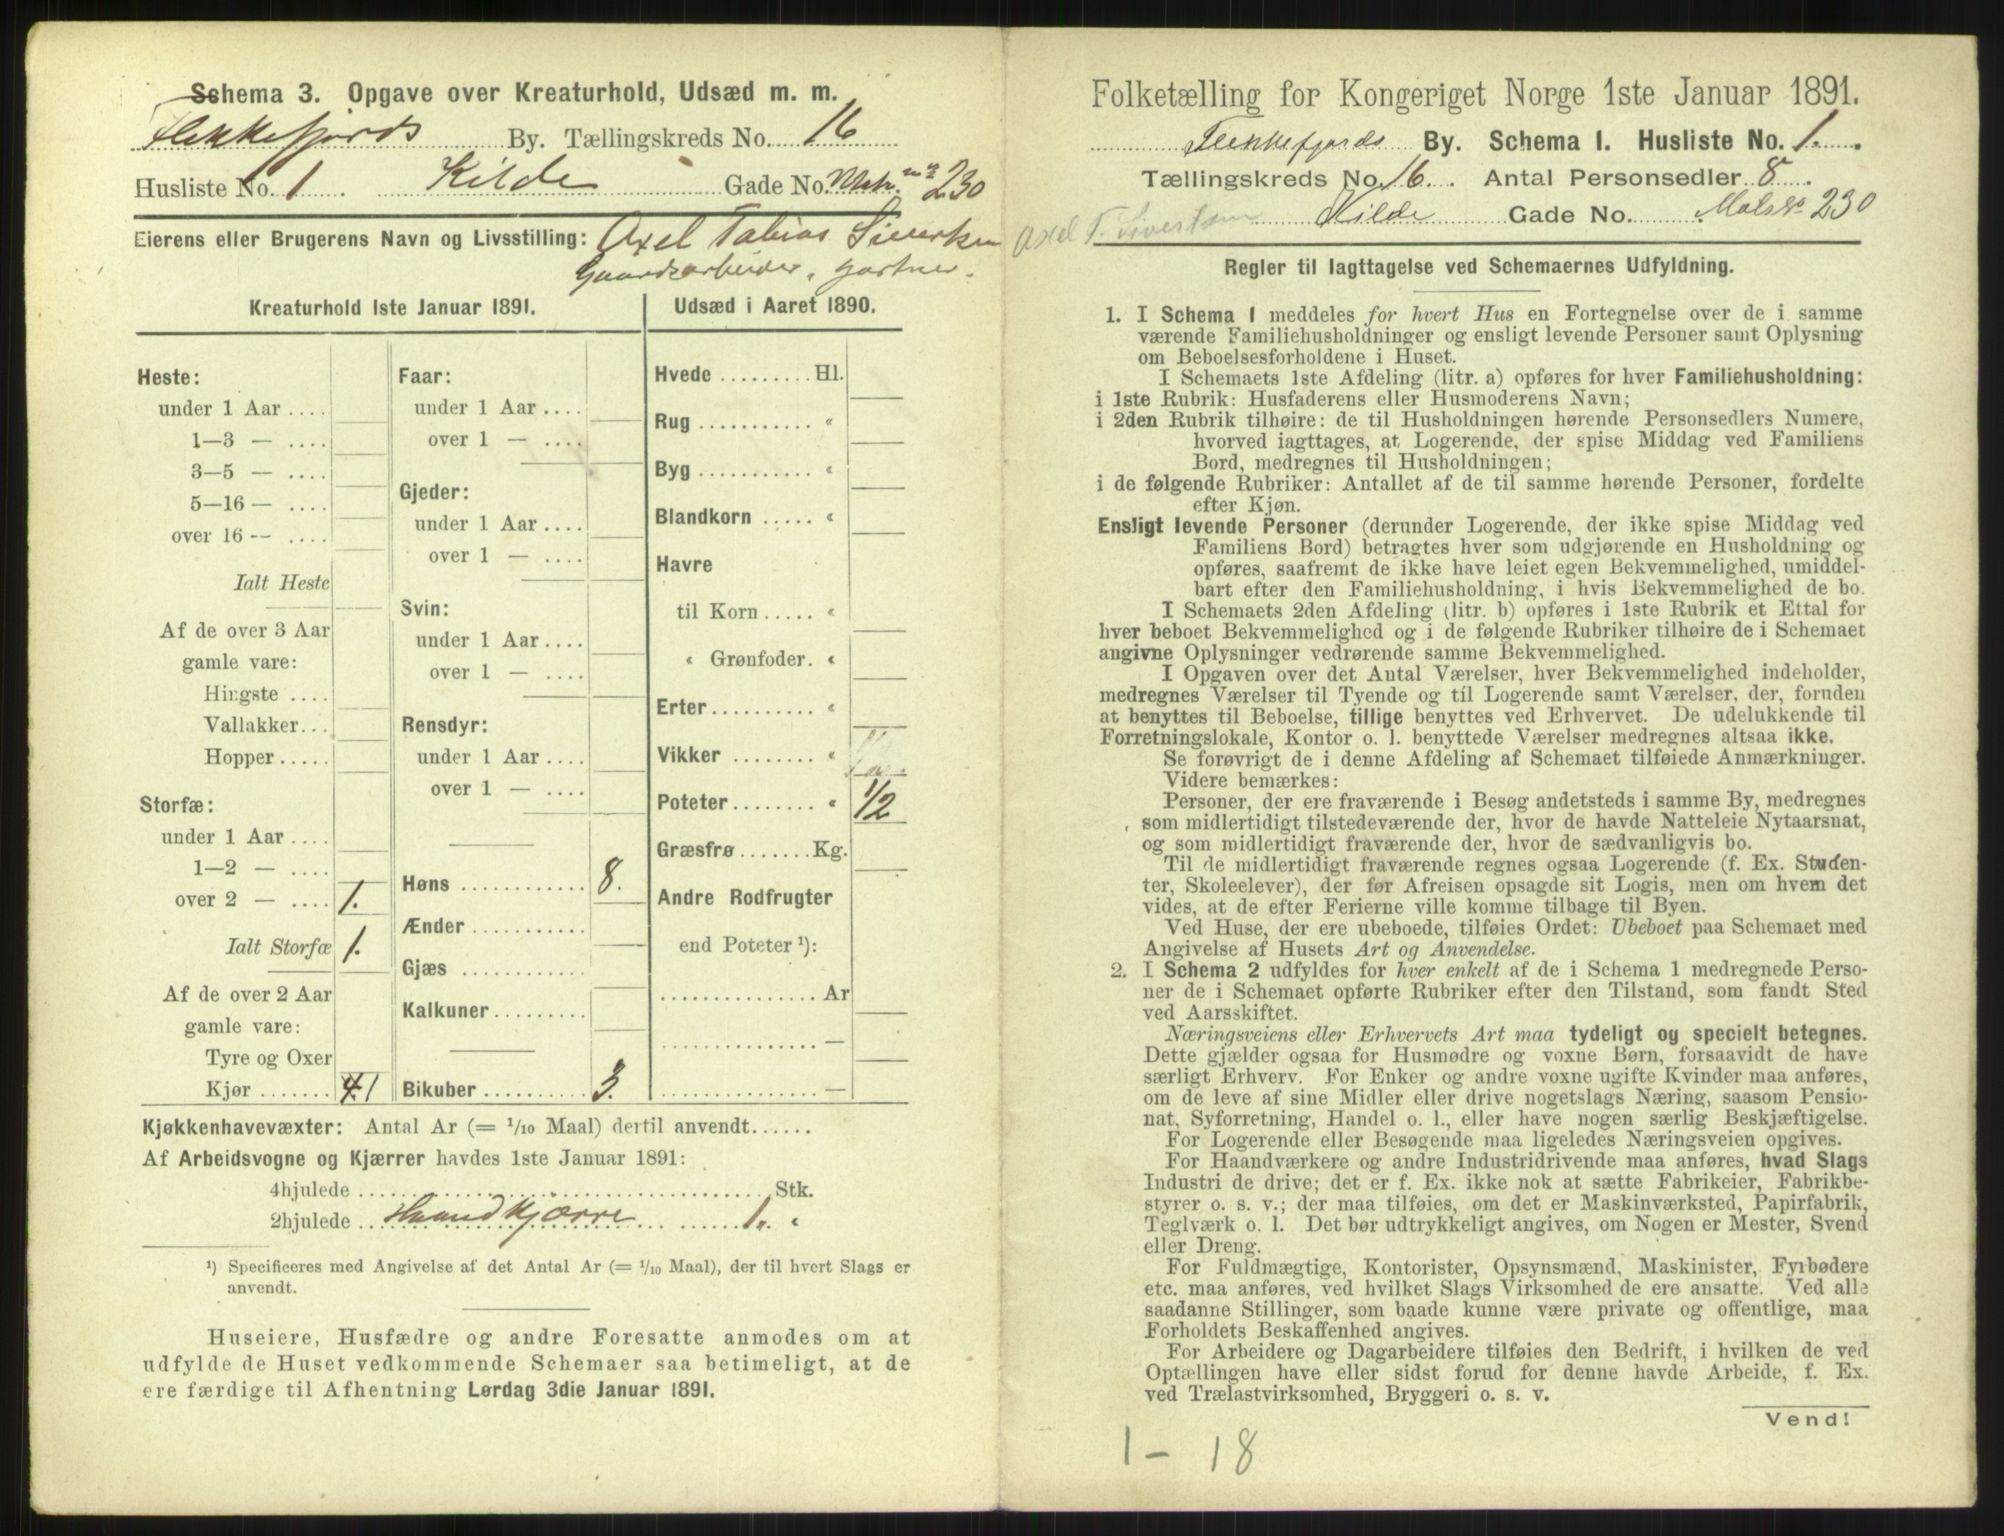 Schema 3. Opgave over Kreaturhold, Udsæd m. m.
Flekkefjords By. Tællingskreds No. 16
Husliste No. 1 Kilde Gade No. Matr. no 230
Eierens eller Brugerens Navn og Livsstilling: Axel Tobias Siversen
Gaardsarbeider, gartner.
Kreaturhold 1ste Januar 1891.
Heste:
under 1 Aar ....
1—3 — ....
3—5 — ....
5—16 — ....
over 16 -- ....
Ialt Heste
Af de over 3 Aar
gamle vare:
Hingste ....
Vallakker...
Hopper .....
Storfæ:
under 1 Aar ....
1—2 — ....
over 2 — .... 1.
Ialt Storfæ 1.
Af de over 2 Aar
gamle vare:
Tyre og Oxer
Kjør ....... 1
Faar:
under 1 Aar ....
over 1 — ....
Gjeder:
under 1 Aar ....
over 1 — ....
Svin:
under 1 Aar ....
over 1 — ....
Rensdyr:
under 1 Aar ....
over 1 — ....
Høns ............ 8.
Ænder ...........
Gjæs ............
Kalkuner..........
Bikuber .......... 3.
Udsæd i Aaret 1890.
Hvede ......... Hl.
Rug ........... «
Byg ........... «
Blandkorn ..... «
Havre
til Korn ..... «
« Grønfoder. «
Erter.......... «
Vikker ........ «
Poteter ........ « 1/2
Græsfrø ....... Kg.
Andre Rodfrugter
end Poteter ¹):
............... Ar
............... —
............... —
Kjøkkenhavevæxter: Antal Ar (= 1/10 Maal) dertil anvendt......
Af Arbeidsvogne og Kjærrer havdes 1ste Januar 1891:
4hjulede ........................................ Stk.
2hjulede ... Haandkjærre ...... 1. «
¹) Specificeres med Angivelse af det Antal Ar (= 1/10 Maal), der til hvert Slags er
anvendt.
Huseiere, Husfædre og andre Foresatte anmodes om at
udfylde de Huset vedkommende Schemaer saa betimeligt, at de
ere færdige til Afhentning Lørdag 3die Januar 1891.
Folketælling for Kongeriget Norge 1ste Januar 1891.
Flekkefjords By. Schema I. Husliste No. 1.
Tællingskreds No. 16. Antal Personsedler 8.
Axel T. Sivertsen Kilde Gade No. 230
Regler til Iagttagelse ved Schemaernes Udfyldning.
1. I Schema 1 meddeles for hvert Hus en Fortegnelse over de i samme
værende Familiehusholdninger og ensligt levende Personer samt Oplysning
om Beboelsesforholdene i Huset.
I Schemaets 1ste Afdeling (litr. a) opføres for hver Familiehusholdning:
i 1ste Rubrik: Husfaderens eller Husmoderens Navn;
i 2den Rubrik tilhøire: de til Husholdningen hørende Personsedlers Numere,
hvorved iagttages, at Logerende, der spise Middag ved Familiens
Bord, medregnes til Husholdningen;
i de følgende Rubriker: Antallet af de til samme hørende Personer, fordelte
efter Kjøn.
Ensligt levende Personer (derunder Logerende, der ikke spise Middag ved
Familiens Bord) betragtes hver som udgjørende en Husholdning og
opføres, saafremt de ikke have leiet egen Bekvemmelighed, umiddel-
bart efter den Familiehusholdning, i hvis Bekvemmelighed de bo.
I Schemaets 2den Afdeling (litr. b) opføres i 1ste Rubrik et Ettal for
hver beboet Bekvemmelighed og i de følgende Rubriker tilhøire de i Schemaet
angivne Oplysninger vedrørende samme Bekvemmelighed.
I Opgaven over det Antal Værelser, hver Bekvemmelighed indeholder,
medregnes Værelser til Tyende og til Logerende samt Værelser, der, foruden
at benyttes til Beboelse, tillige benyttes ved Erhvervet. De udelukkende til
Forretningslokale, Kontor o. l. benyttede Værelser medregnes altsaa ikke.
Se forøvrigt de i denne Afdeling af Schemaet tilføiede Anmærkninger.
Videre bemærkes:
Personer, der ere fraværende i Besøg andetsteds i samme By, medregnes
som midlertidigt tilstedeværende der, hvor de havde Natteleie Nytaarsnat,
og som midlertidigt fraværende der, hvor de sædvanligvis bo.
Til de midlertidigt fraværende regnes ogsaa Logerende (f. Ex. Studen-
ter, Skoleelever), der før Afreisen opsagde sit Logis, men om hvem det
vides, at de efter Ferierne ville komme tilbage til Byen.
Ved Huse, der ere ubeboede, tilføies Ordet: Ubeboet paa Schemaet med
Angivelse af Husets Art og Anvendelse.
2. I Schema 2 udfyldes for hver enkelt af de i Schema 1 medregnede Perso-
ner de i Schemaet opførte Rubriker efter den Tilstand, som fandt Sted
ved Aarsskiftet.
Næringsveiens eller Erhvervets Art maa tydeligt og specielt betegnes.
Dette gjælder ogsaa for Husmødre og voxne Børn, forsaavidt de have
særligt Erhverv. For Enker og andre voxne ugifte Kvinder maa anføres,
om de leve af sine Midler eller drive nogetslags Næring, saasom Pensio-
nat, Syforretning, Handel o. l., eller have nogen særlig Beskjæftigelse.
For Logerende eller Besøgende maa ligeledes Næringsveien opgives.
For Haandværkere og andre Industridrivende maa anføres, hvad Slags
Industri de drive; det er f. Ex. ikke nok at sætte Fabrikeier, Fabrikbe-
styrer o. s. v.; der maa tilføies, om det er Maskinværksted, Papirfabrik,
Teglværk o. l. Det bør udtrykkeligt angives, om Nogen er Mester, Svend
eller Dreng.
For Fuldmægtige, Kontorister, Opsynsmænd, Maskinister, Fyrbødere
etc. maa anføres, ved hvilket Slags Virksomhed de ere ansatte. Ved alle
saadanne Stillinger, som baade kunne være private og offentlige, maa
Forholdets Beskaffenhed angives.
For Arbeidere og Dagarbeidere tilføies den Bedrift, i hvilken de ved
Optællingen have eller sidst forud for denne havde Arbeide, f. Ex.
ved Trælastvirksomhed, Bryggeri o. s. v.
Vend!
1 - 18